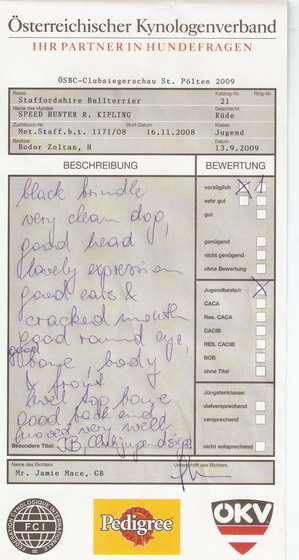 Österreichischer Kynologenverband
IHR PARTNER IN HUNDEFRAGEN
ÖSBC-Clubsiegerschau St. Pölten 2009
Rasse Katalog-Nr. Ring-Nr.
Staffordshire Bullterrier 21
Name des Hundes Geschlecht
SPEED HUNTER R. KIPLING Rüde
Zuchtbuch-Nr. Wurf-Datum Klasse
Met.Staff.b.t. 1171/08 16.11.2008 Jugend
Besitzer Datum
Bodor Zoltan, H 13.9.2009
BESCHREIBUNG BEWERTUNG
black brindle
very clean dop,
good head
lovely expression
good ears &
cracked mouth
good round eye,
good bone, body
& front
well top
good back end
moved very well
Besondere Titel: JB, Clubjugendsieger
vorzüglich X 1
sehr gut
gut
genügend
nicht genügend
ohne Bewertung
Jugendbeste/r X
CACA
Res. CACA
CACIB
RES. CACIB
BOB
ohne Titel
Jüngstenklasse:
vielversprechend
versprechend
nicht entsprechend
Name des Richters Unterschrift des Richters
Mr. Jamie Mace, GB
FEDERATION CYNOLOGIQUE INTERNATIONALE
FCI
Pedigree
ÖKV